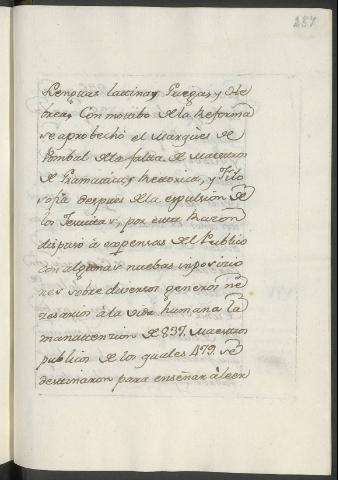 287
Lenguas Latina, Griega, y He
brea. Con motibo de la Reforma
se aprobechó el Marqués de
Pombal de la falta de Maestros
de Gramatica, Rettorica, y Filo
sofia despues de la expulsion de
los Jesuitas, por esta Razon
dispuso à expensas del Publico
con algunas nuebas inposicio
nes sobre diversos generos ne
zesarios à la vida humana la
manutenzion de 837. Maestros
publicos de los quales 479. se
destinaron para enseñar à leer